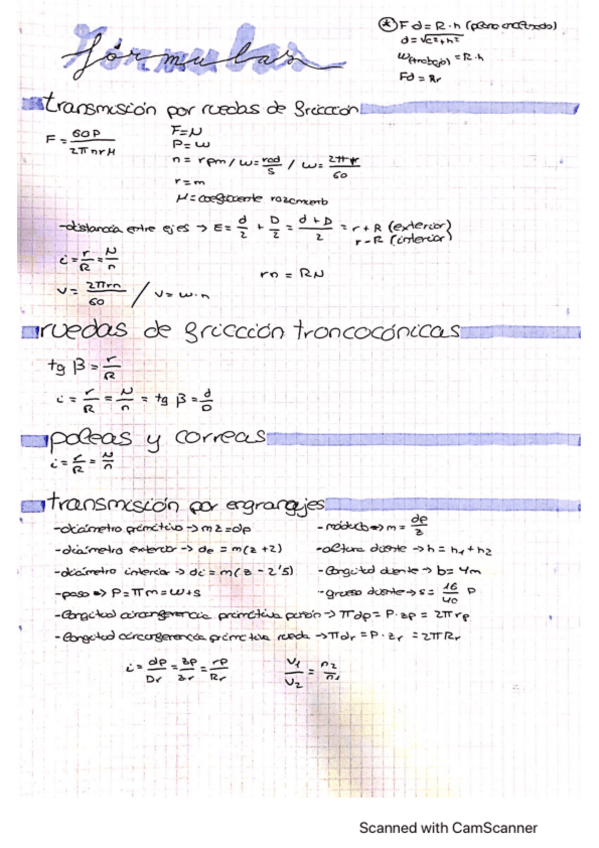 Fórmulas
* F d = R · h (plano inclinado)
d = √c²+h²
W(trabajo) = R · h
Fd = Rr
transmisión por ruedas de fricción
F = 60P / 2π n r μ
F = N
P = W
n = rpm / ω = rad/s / ω = 2π r / 60
r = m
μ = coeficiente rozamiento
- distancia entre ejes → E = d/2 + D/2 = d + D / 2 = r + R (exterior)
r - R (interior)
i = r/R = N/n
rn = RN
v = 2πrn / 60 / v = ω · n
ruedas de fricción troncocónicas
tg β = r/R
i = r/R = N/n = tg β = d/D
poleas y correas
i = r/R = N/n
transmisión por engranajes
- diámetro primitivo → mz = dp
- módulo → m = dp/z
- diámetro exterior → de = m(z + 2)
- altura diente → h = h1 + h2
- diámetro interior → di = m(z - 2'5)
- longitud diente → b = 4m
- paso → P = πm = w + s
- grueso diente → s = 16/40 P
- longitud circunferencia primitiva piñón → πdp = P · zp = 2πrp
- longitud circunferencia primitiva rueda → πdr = P · zr = 2πRr
i = dp/Dr = zp/zr = rp/Rr
V1/V2 = n2/n1
Scanned with CamScanner